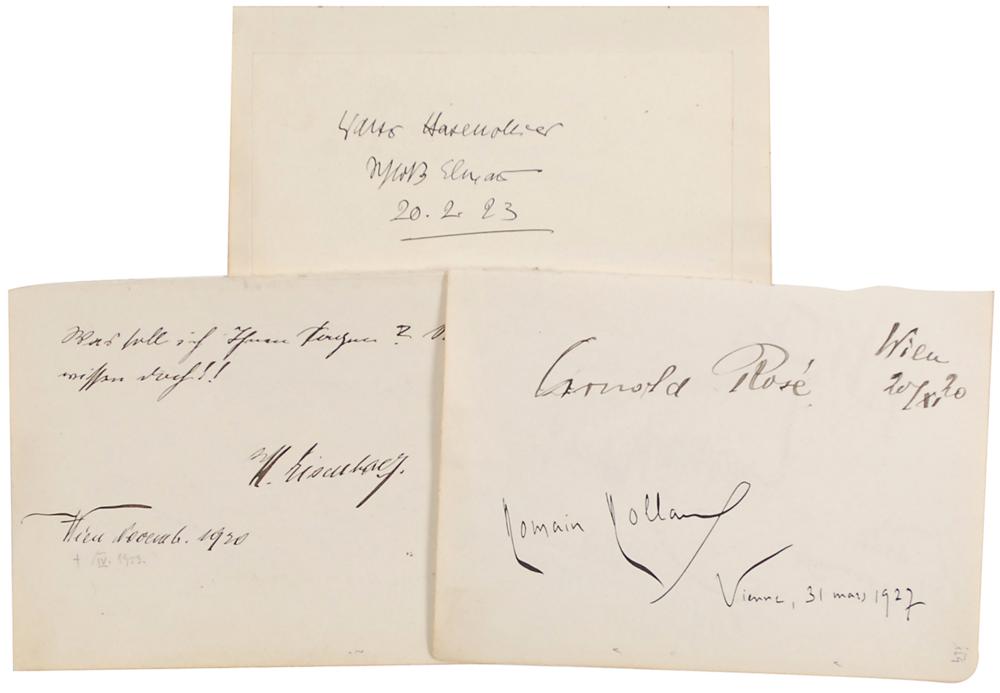 Walter Hasenclever
Schloß Elmau
20. 2. 23
Was soll ich Ihnen sagen?
wissen doch!!
H. Eisenbach.
Wien Decemb. 1920
Arnold Rosé
Wien
20/XI 20
Romain Rolland
Vienne, 31 mars 1927